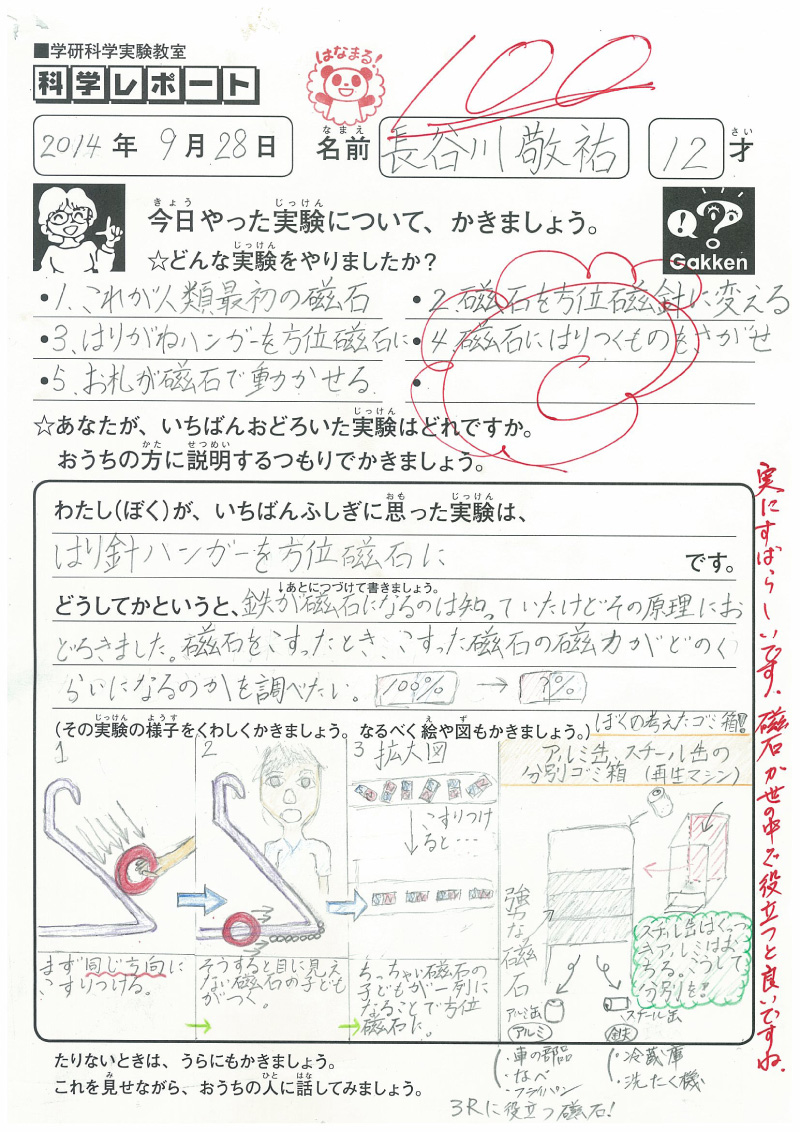 ■学研科学実験教室
科学レポート
はなまる!
100
2014年 9月28日
なまえ
名前 長谷川敬祐
12才
さい
きょう じっけん
今日やった実験について、かきましょう。
じっけん
☆どんな実験をやりましたか?
Gakken
•1.これが人類最初の磁石
•2.磁石を方位磁針に変える
•3.はりがねハンガーを方位磁石に
•4.磁石にはりつくものをさがせ
•5.お札が磁石で動かせる
•
じっけん
☆あなたが、いちばんおどろいた実験はどれですか。
かた せつめい
おうちの方に説明するつもりでかきましょう。
おも じっけん
わたし(ぼく)が、いちばんふしぎに思った実験は、
はり針ハンガーを方位磁石に です。
↓あとにつづけて書きましょう。
どうしてかというと、鉄が磁石になるのは知っていたけどその原理にお
どろきました。磁石をこすったとき、こすった磁石の磁力がどのく
らいになるのかを調べたい。 100% → ?%
じっけん ようす え ず
(その実験の様子をくわしくかきましょう。なるべく絵や図もかきましょう。)
ぼくの考えたゴミ箱!!
1
まず同じ方向に
こすりつける。
2
そうすると目に見え
ない磁石の子ども
がつく。
3 拡大図
こすりつけ
ると…
ちっちゃい磁石の
子どもが一列に
なることで方位
磁石に。
アルミ缶、スチール缶の
分別ゴミ箱(再生マシン)
強力な磁石
スチール缶はくっつ
きアルミはお
ちる。こうして
分別を!!
アルミ缶
アルミ
・車の部品
・なべ
・フライパン
スチール缶
鉄
・冷蔵庫
・洗たく機
3Rに役立つ磁石!
たりないときは、うらにもかきましょう。
み ひと はな
これを見せながら、おうちの人に話してみましょう。
実にすばらしいです。磁石が世の中で役立つと良いですね。